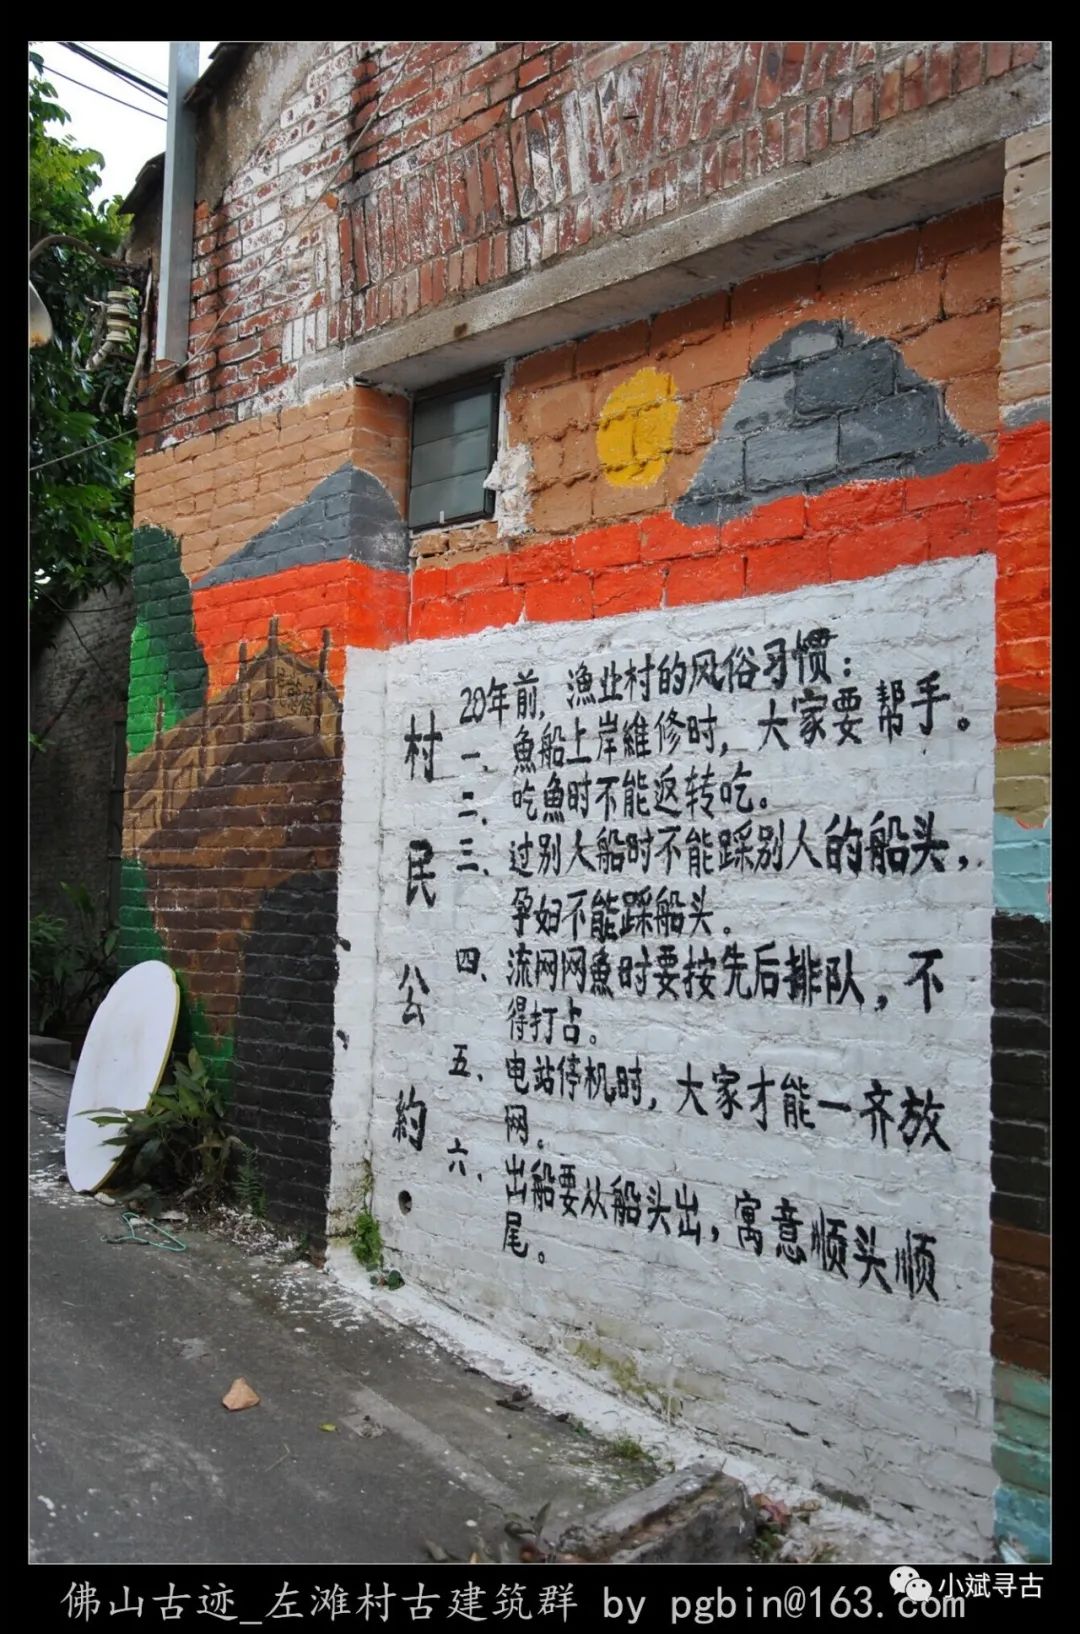 村民公約
20年前，漁业村的风俗习惯：
一、魚船上岸維修时，大家要帮手。
二、吃魚时不能返转吃。
三、过别人船时不能踩别人的船头，
孕妇不能踩船头。
四、流网网魚时要按先后排队，不
得打占。
五、电站停机时，大家才能一齐放
网。
六、出船要从船头出，寓意顺头顺
尾。
小斌寻古
佛山古迹_左滩村古建筑群 by pgbin@163.com